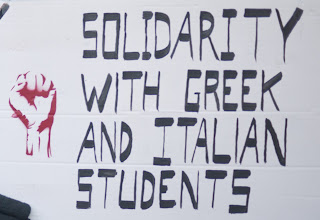 SOLIDARITY
WITH GREEK
AND ITALIAN
STUDENTS